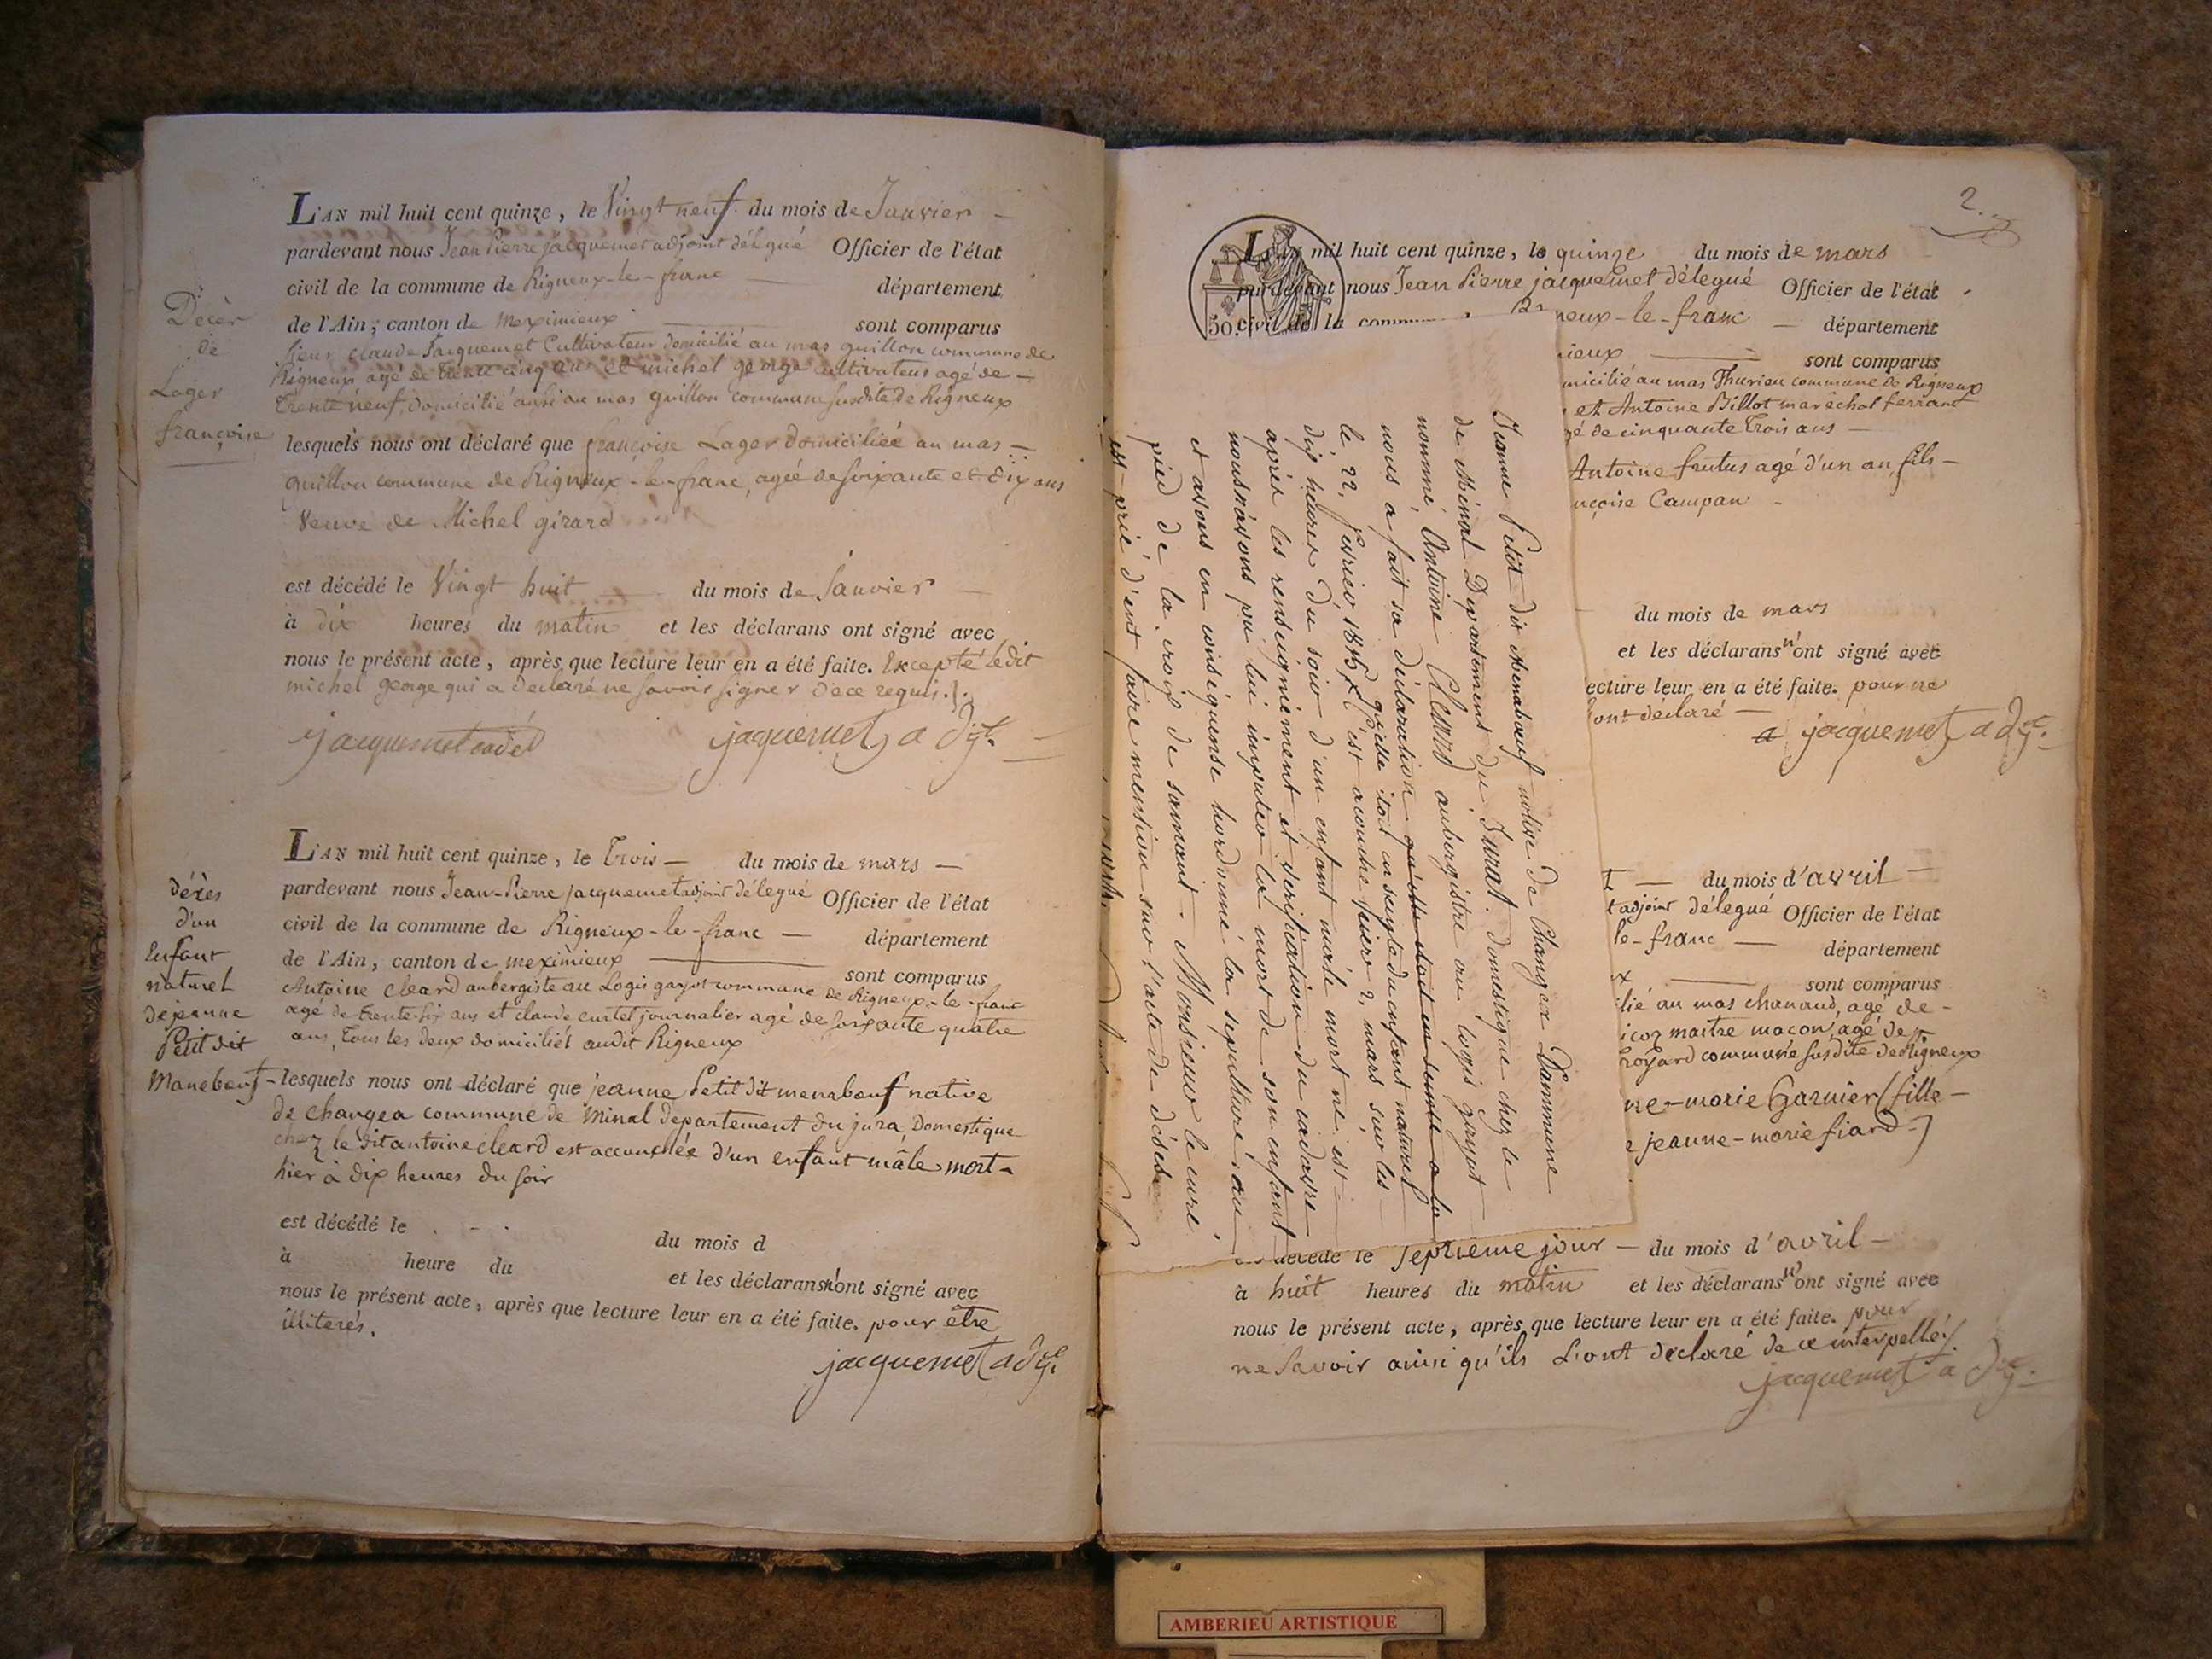 Décès
de
Lager
françoise
L'AN mil huit cent quinze, le Vingt neuf du mois de Janvier
pardevant nous Jean Pierre jacquemet adjoint délegué Officier de l'état
civil de la commune de Rigneux-le-franc département
de l'Ain, canton de meximieux sont comparus
sieur claude Jacquemet Cultivateur domicilié au mas guillon commune de
Rigneux, agé de trente cinq ans et michel george cultivateur agé de
trente neuf, domicilié aussi au mas guillon commune susdite de Rigneux
lesquels nous ont déclaré que françoise Lager domiciliée au mas
guillon commune de Rigneux-le-franc, agée de soixante et dix ans
Veuve de Michel girard
est décédé le Vingt huit du mois de Janvier
à dix heures du matin et les déclarans ont signé avec
nous le présent acte, après que lecture leur en a été faite. Excepté ledit
michel george qui a declaré ne savoir signer de ce requis.
jacquemet jacquemet adjt.
décès
d'un
Enfant
naturel
de jeanne
Petit dit
Manebœuf
L'AN mil huit cent quinze, le trois du mois de mars
pardevant nous Jean-Pierre jacquemet adjoint délegué Officier de l'état
civil de la commune de Rigneux-le-franc département
de l'Ain, canton de meximieux sont comparus
Antoine cleard aubergiste au Logis gazot commune de Rigneux-le-franc
agé de trente six ans et claude curtet journalier agé de soixante quatre
ans, tous les deux domiciliés audit Rigneux
lesquels nous ont déclaré que jeanne Petit dit menabœuf native
de changea commune de Minal departement du jura, Domestique
chez le dit antoine cleard est accouchée d'un enfant mâle mort
hier à dix heures du soir
est décédé le du mois d
à heure du et les déclarans n'ont signé avec
nous le présent acte, après que lecture leur en a été faite. pour être
illiterés.
jacquemet adjt.
2.
L'AN mil huit cent quinze, le quinze du mois de mars
pardevant nous Jean Pierre jacquemet délegué Officier de l'état
50. civil de la neux-le-franc département
ieux sont comparus
micilié au mas Thurieu commune de Rigneux
et Antoine Billot maréchal ferrant
gé de cinquante trois ans
Antoine frutus agé d'un an, fils
nçoise Campan
du mois de mars
et les déclarans n'ont signé avec
ecture leur en a été faite. pour ne
ont déclaré
a jacquemet adjt.
Jeanne Petit dit Menabœuf native de Changea Dammune
de Minal Département du Jura. domestique chez le
nommé, Antoine Cleard aubergiste au logis gazot
nous a fait sa déclaration qu'elle
quelle toit enseynte du enfant naturel
le 22, fevrier 1815 est acouche hiere 2, mars sur les
dix heures du soir d'un enfant male mort ne est
après les renseignement et verification du cadavre
nous navons pu lui imputer la mort de son enfant
et avons en conséquense hordonné la sepulture au
pied de la croix de sannant. Monsieur le curé
est prié d'ent faire mention sur l'acte de déses
du mois d'avril
t adjoint délegué Officier de l'état
le-franc département
x sont comparus
ilié au mas chanaud, agé de
icoz maitre macon, agé de
royard commune susdite de Rigneux
ne-marie Garnier fille
e jeanne-marie fiard
décédé le septieme jour du mois d'avril
à huit heures du matin et les déclarans n'ont signé avec
nous le présent acte, après que lecture leur en a été faite. pour
ne Savoir ainsi qu'ils L'ont declaré de ce interpellé.
jacquemet adjt.
AMBERIEU ARTISTIQUE